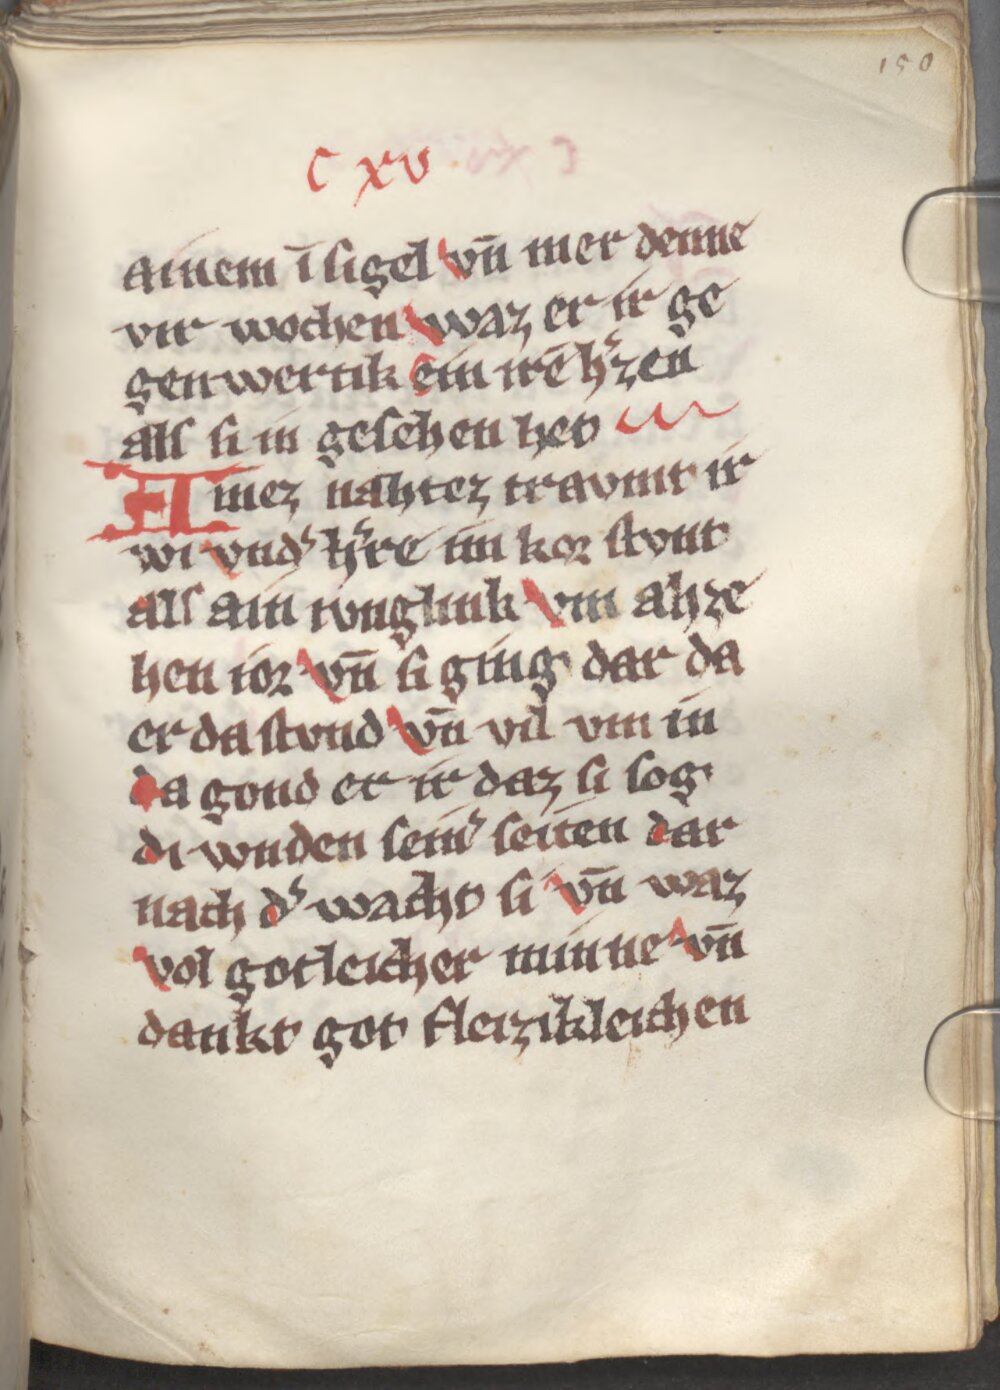 150
C xv
ainem īsigel vn̄ mer denne
vir wochen waz er ir ge
genwertik ein irē h̾zen
als si in gesehen het
Ainez nahtez travmt ir
wi vnd̾ h̾re im kor stvnt
als ain ivnglink vm ahze
hen ior vn̄ si ging dar da
er da stvnd vn̄ vil vm in
da gond er ir daz si sog
di wnden sein̾ seiten dar
nach d̾ wacht si vn̄ waz
vol gotleicher minne vn̄
dankt got fleizikleichen